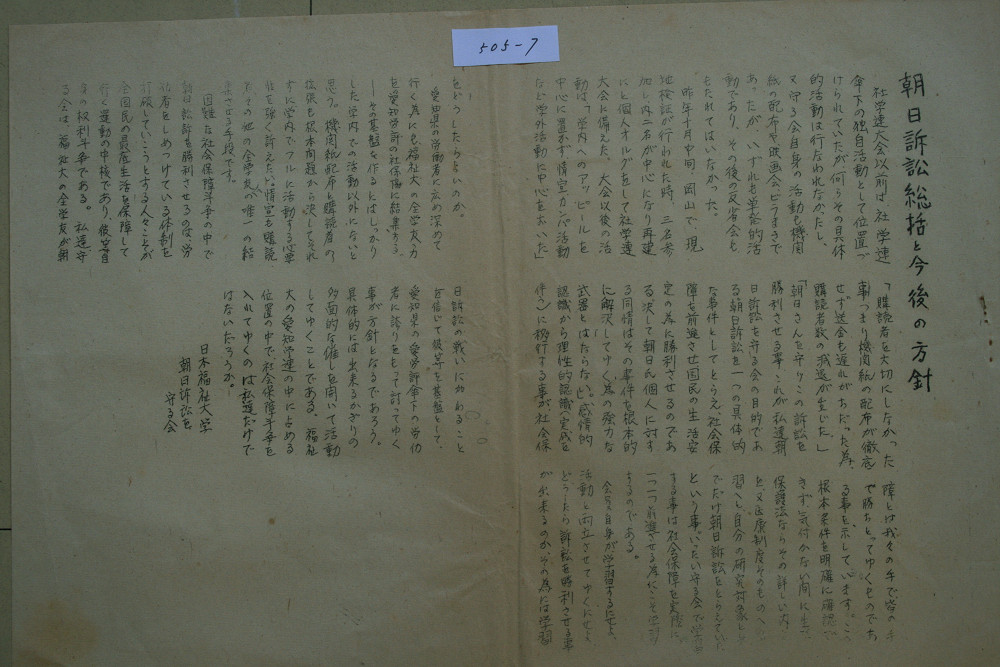 505-7
朝日訴訟総括と今後の方針
社学連大会以前は社学連
傘下の独自活動として位置づ
けられていたが何らその具体
的活動は行なわれなかたし、
又守る会自身の活動も機関
紙の配布や映画会ビラまきで
あったが、いずれも単発的活
動であり、その後の反省会も
もたれてはいなかった。
昨年十月中旬、岡山で、現
地検証が行われた時、三名参
加し内二名が中心になり再建
にと個人オルグをして社学連
大会に備えた、大会以後の活
動は「学内へのアッピールを
中心に置かず情宣カンパ活動
など学外活動に中心を太いた」
「購読者を大切にしなかった
事」つまり機関紙の配布が徹底
せず送金も遅れがちだった為、
購読者数の減退が生じた」
「朝日さんを守りこの訴訟を
勝利させる事」これが私達朝
日訴訟を守る会の目的であ
る朝日訴訟を一つの具体的
な事件としてとらえ社会保
障を前進させ国民の生活安
定の為に勝利させるのであ
る決して朝日氏個人に対す
る同情はその事件を根本的
に解決してゆく為の強力な
武器とはたらない。"感情的
認識から理性的認識へ実践を
伴って移行する事"が社会保
障とは我々の手で皆の手
で勝ちとってゆくものであ
る事を示しています。こ
根本条件を明確に確認
きず気付かない間に生
保護法ならその詳しい内
と、又医療制度そのものへ
習へし自分の研究対象と
でだけ朝日訴訟をとらえて
という事。いったい守る会で学
する事は社会保障を実際に
一つ一つ前進させる為にこそ学習
するのである。
会員自身が学習するにせよ
活動と両立させてゆくにせよ
どうしたら訴訟を勝利させる事
が出来るのか、その為には学習
をどうしたらよいのか。
愛知県の労働者に広め深めて
行く為にも福祉大の全学友の力
を愛知労評の社保協に結集する。
しその基盤を作るにはしっかり
した学内での活動以外にないと
思う。機関紙配布も購読者の
拡張も根本問題から決してそれ
ずに学内でフルに活動する必要
性を強く訴えたい。情宣も購読
もその他の全学友への唯一の結
集させる手段です。
困難な社会保障斗争の中で
朝日訴訟を勝利させる為は労
働者をしめつけている体制を
打破していこうとする人々こそが
全国民の最底生活を保障して
行く運動の中核であり、彼等自
身の権利斗争である。私達守
る会は福祉大の全学友が朝
日訴訟の戦いに加わること
を信じて彼等を基盤として、
愛知県の愛労評傘下の労仂
者に誇りをもって討ってゆく
事が方針となるであろう。
具体的には出来るかぎりの
多面的な催しを開いて活動
してゆくことである。福祉
大の愛知学連の中に占める
位置の中で、社会保障斗争を
入れてゆくのは私達だけで
はないだろうか。
日本福祉大学
朝日訴訟を
守る会